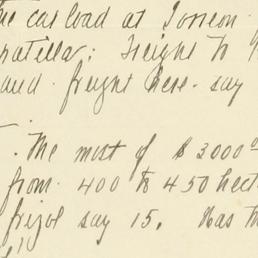 the car load at Torreon.
ratilla; Freight to
and freight here. say
. The most of $3000.00
from 400 to 450 hect
frijol say 15. Has th